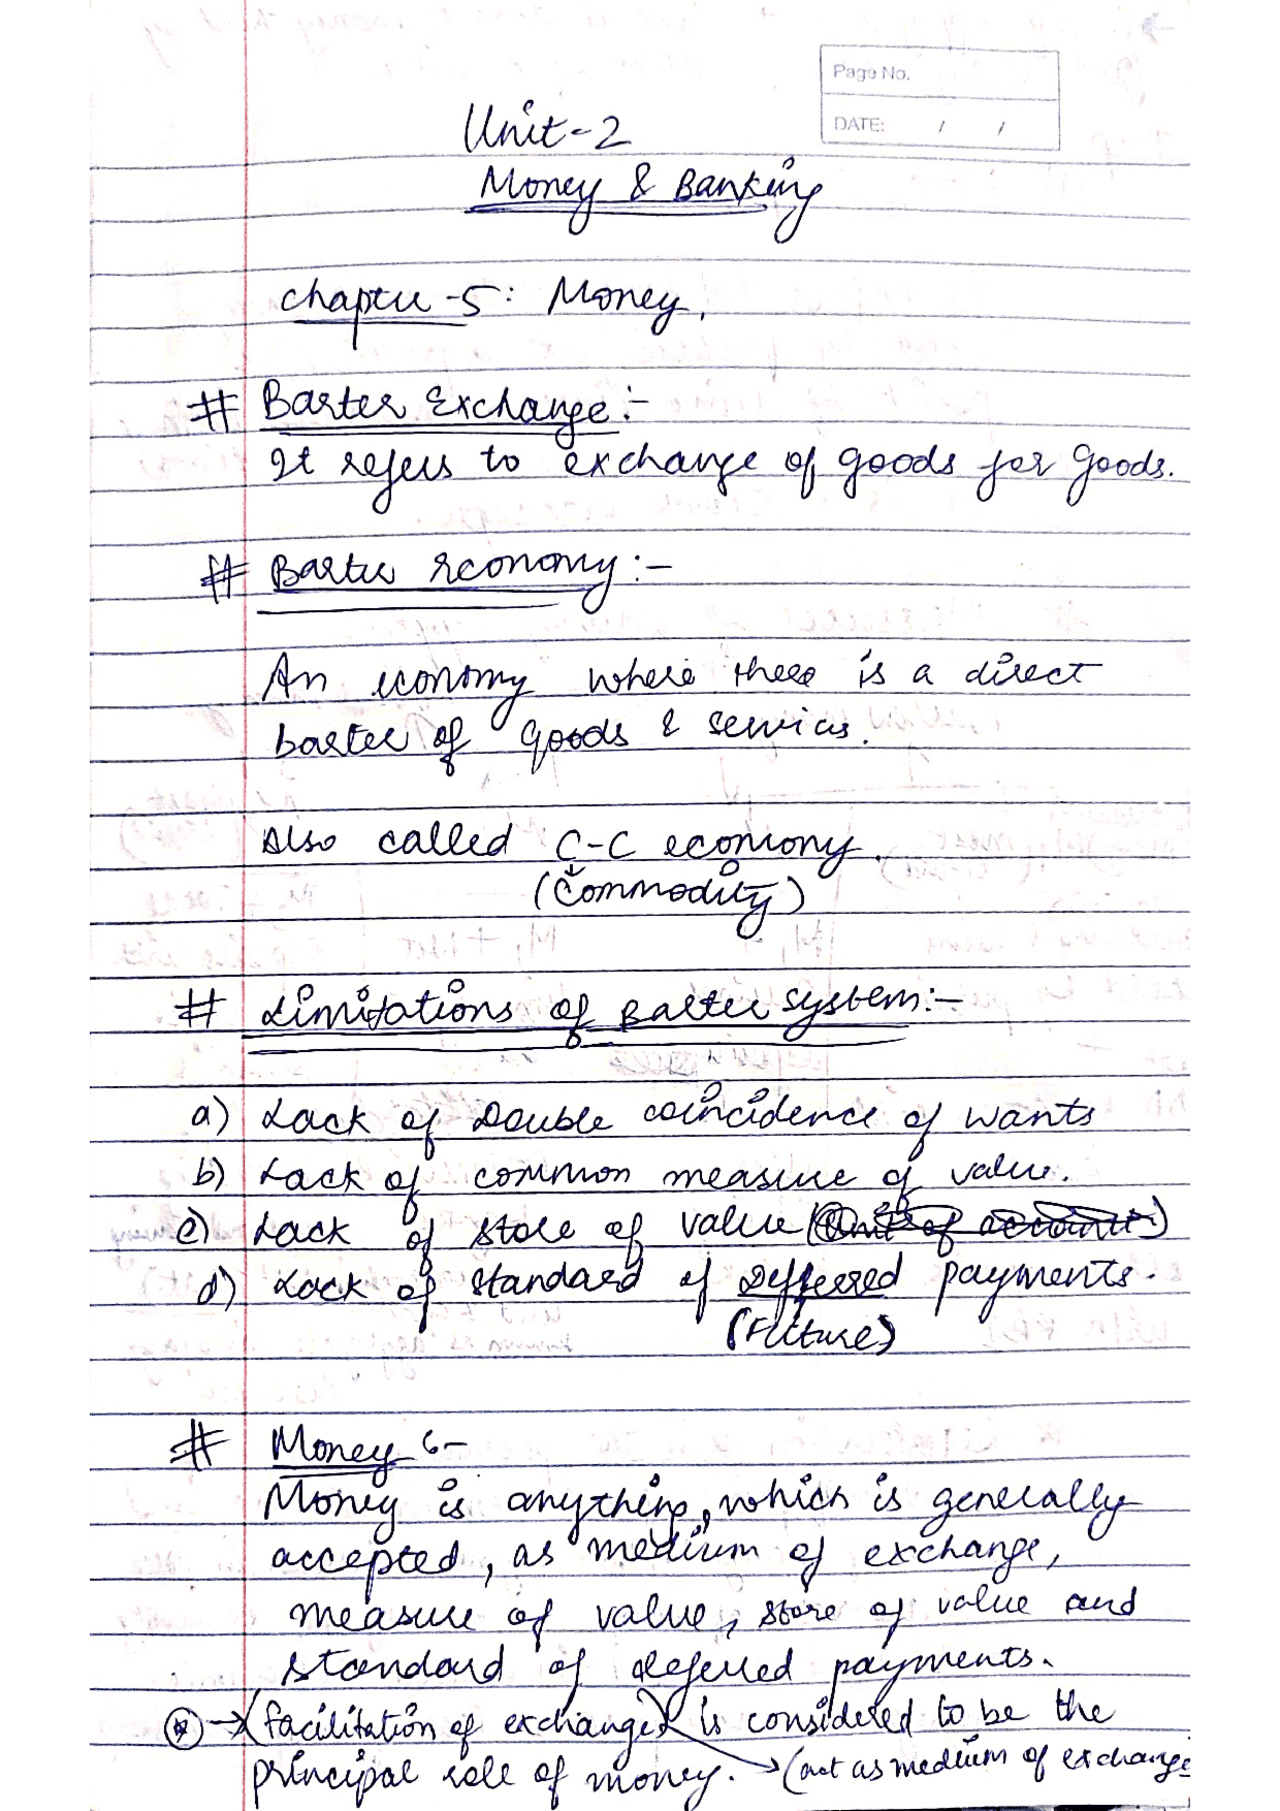 Page No.
DATE: / /
Unit-2
Money & Banking
Chapter-5: Money.
# Barter Exchange:-
It refers to exchange of goods for goods.
# Barter economy:-
An economy where there is a direct
barter of goods & services.
Also called C-C economy.
(Commodity)
# Limitations of Barter system:-
a) Lack of Double coincidence of wants
b) Lack of common measure of value.
c) Lack of store of value (Unit of account)
d) Lack of standard of Deffered payments.
(Future)
# Money :-
Money is anything, which is generally
accepted, as medium of exchange,
measure of value, store of value and
standard of deferred payments.
→ (facilitation of exchange) is considered to be the
principal role of money. → (act as medium of exchange